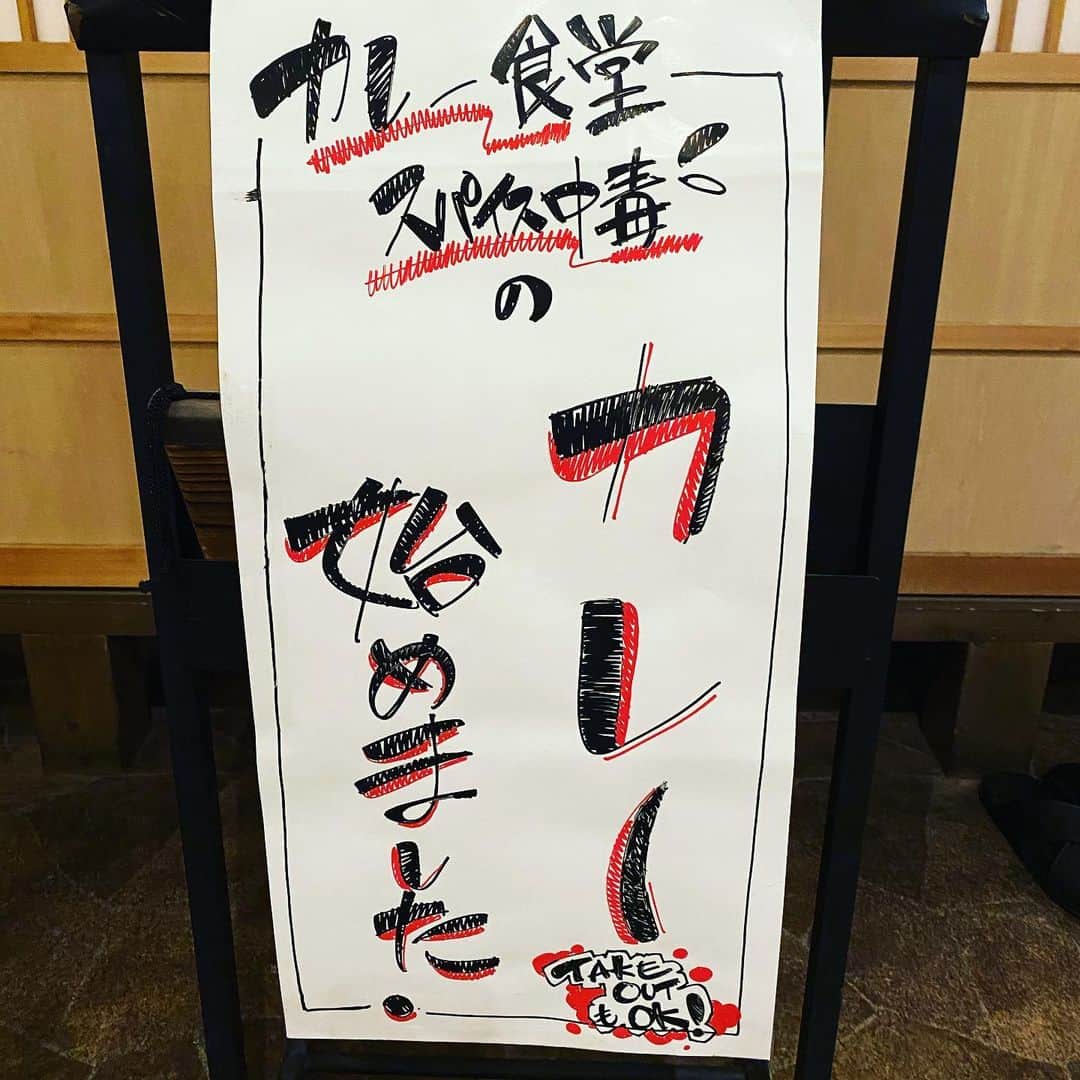 カレー食堂
スパイス中毒!
の
カレー
始めました.
TAKE
OUT
も OK!